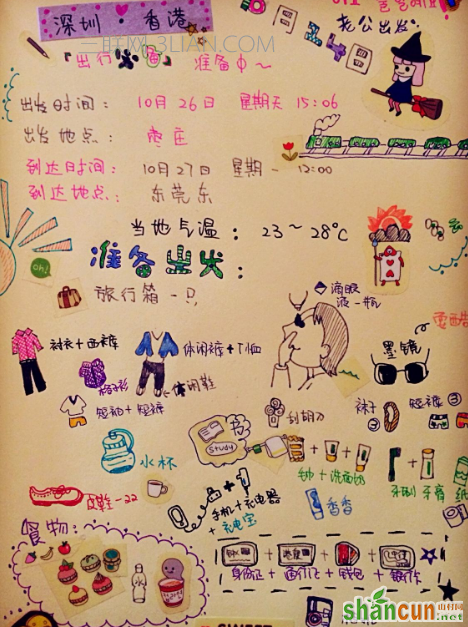 深圳 · 香港
三联网 3LIAN.COM
老公出发
『出行必备』 准备中~
出发时间: 10月26日 星期天 15:06
出发地点: 枣庄
到达时间: 10月27日 星期一 12:00
到达地点: 东莞东
当地气温: 23~28℃
oh!
准备出发:
旅行箱一只
滴眼液一瓶
衬衣+西裤
休闲裤+T恤
墨镜
休闲鞋
短袖+短裤
刮胡刀
袜子
短裤
study
水杯
牙刷 牙膏
香香
皮鞋
手机+充电器
+充电宝
食物:
身份证+通行证+钱包+银行卡
shancun
.net
SWEET